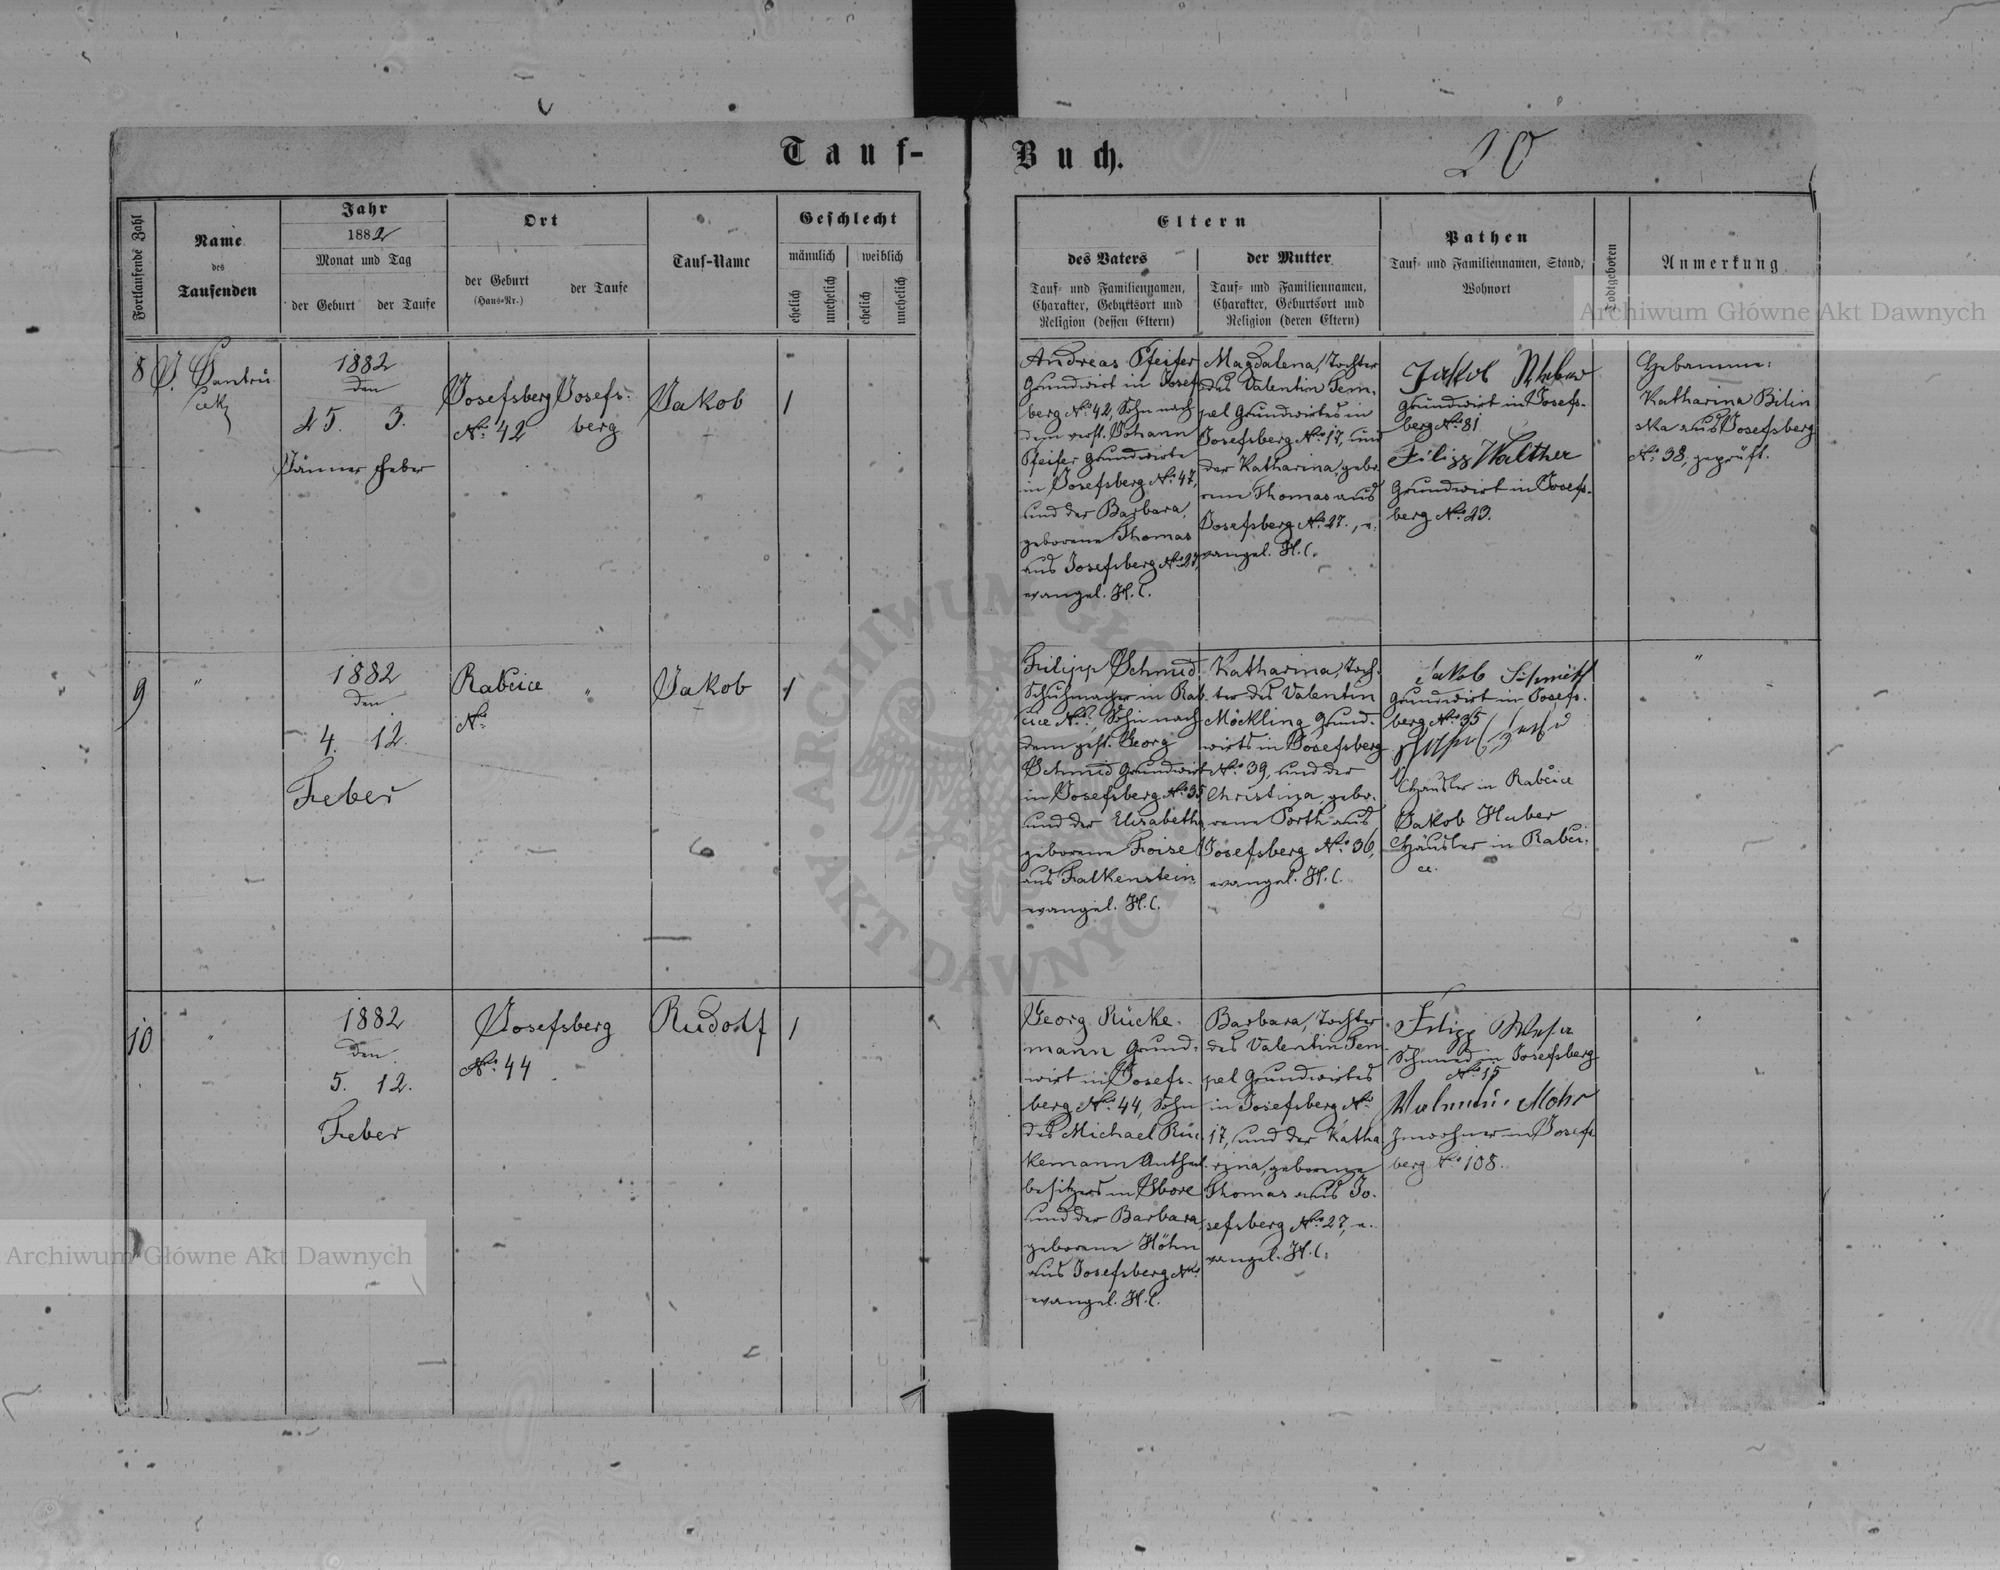 Tauf-Buch.
20
Fortlaufende Zahl
Name
des
Taufenden
Jahr
1882
Monat und Tag
der Geburt
der Taufe
Ort
der Geburt
(Haus-Nr.)
der Taufe
Tauf-Name
Geschlecht
männlich
weiblich
ehelich
unehelich
ehelich
unehelich
Eltern
des Vaters
Tauf- und Familiennamen,
Charakter, Geburtsort und
Religion (dessen Eltern)
der Mutter
Tauf- und Familiennamen,
Charakter, Geburtsort und
Religion (deren Eltern)
Pathen
Tauf- und Familiennamen, Stand,
Wohnort
Todtgeboren
Anmerkung
8
1882
den
25. 3.
Jänner Feber
Josefsberg
No. 42
Josefs-
berg
Jakob
1
Andreas Pfeifer
Grundwirt in Josef
berg No. 42, Sohn nach
dem verst. Johann
Pfeifer Grundwirte
in Josefsberg No. 47,
und der Barbara,
geborene Thomas
aus Josefsberg No. 27,
evangel. H.C.
Magdalena, Tochter
des Valentin Tem-
pel Grundwirtes in
Josefsberg No. 17, und
der Katharina, gebo-
rene Thomas aus
Josefsberg No. 27., e-
vangel. H.C.
Jakob
Grundwirt in Josefs-
berg No. 81
Filipp Walther
Grundwirt in Josefs-
berg No. 23.
Hebamme:
Katharina Bilin
ska aus Josefsberg
No. 38, geprüft.
9
"
1882
den
4. 12.
Feber
Rabčice
No.
"
Jakob
1
Filipp Schmid
in Rab-
čice No. , Sohn nach
dem gest. Georg
Schmid Grundwirt
in Josefsberg No. 35
und der Elisabetha
geborene Froise
aus Falkenstein
evangel. H.C.
Katharina, Toch-
ter des Valentin
Möckling Grund-
wirts in Josefsberg
No. 39, und der
Christina, gebo-
rene Porth aus
Josefsberg No. 36,
evangel. H.C.
Jakob Schmidt
Grundwirt in Josefs-
berg No. 35
Häusler in Rabčice
Jakob Huber
Häusler in Rabči-
ce.
"
10
"
1882
den
5. 12.
Feber
Josefsberg
No. 44
Rudolf
1
Georg Rücke-
mann Grund-
wirt in Josefs-
berg No. 44, Sohn
des Michael Rü-
kemann Antheil-
besitzers in Ugore
und der Barbara,
geborene Höhn
aus Josefsberg No.
evangel. H.C.
Barbara, Tochter
des Valentin Tem-
pel Grundwirtes
in Josefsberg No.
17, und der Katha
rina, geborene
Thomas aus Jo-
sefsberg No. 27, e-
vangel. H.C.
Filipp
Schmied in Josefsberg
No. 15
Mohr
Inwohner in Josefs
berg No. 108.
Archiwum Główne Akt Dawnych
ARCHIWUM GŁÓWNE AKT DAWNYCH
Archiwum Główne Akt Dawnych